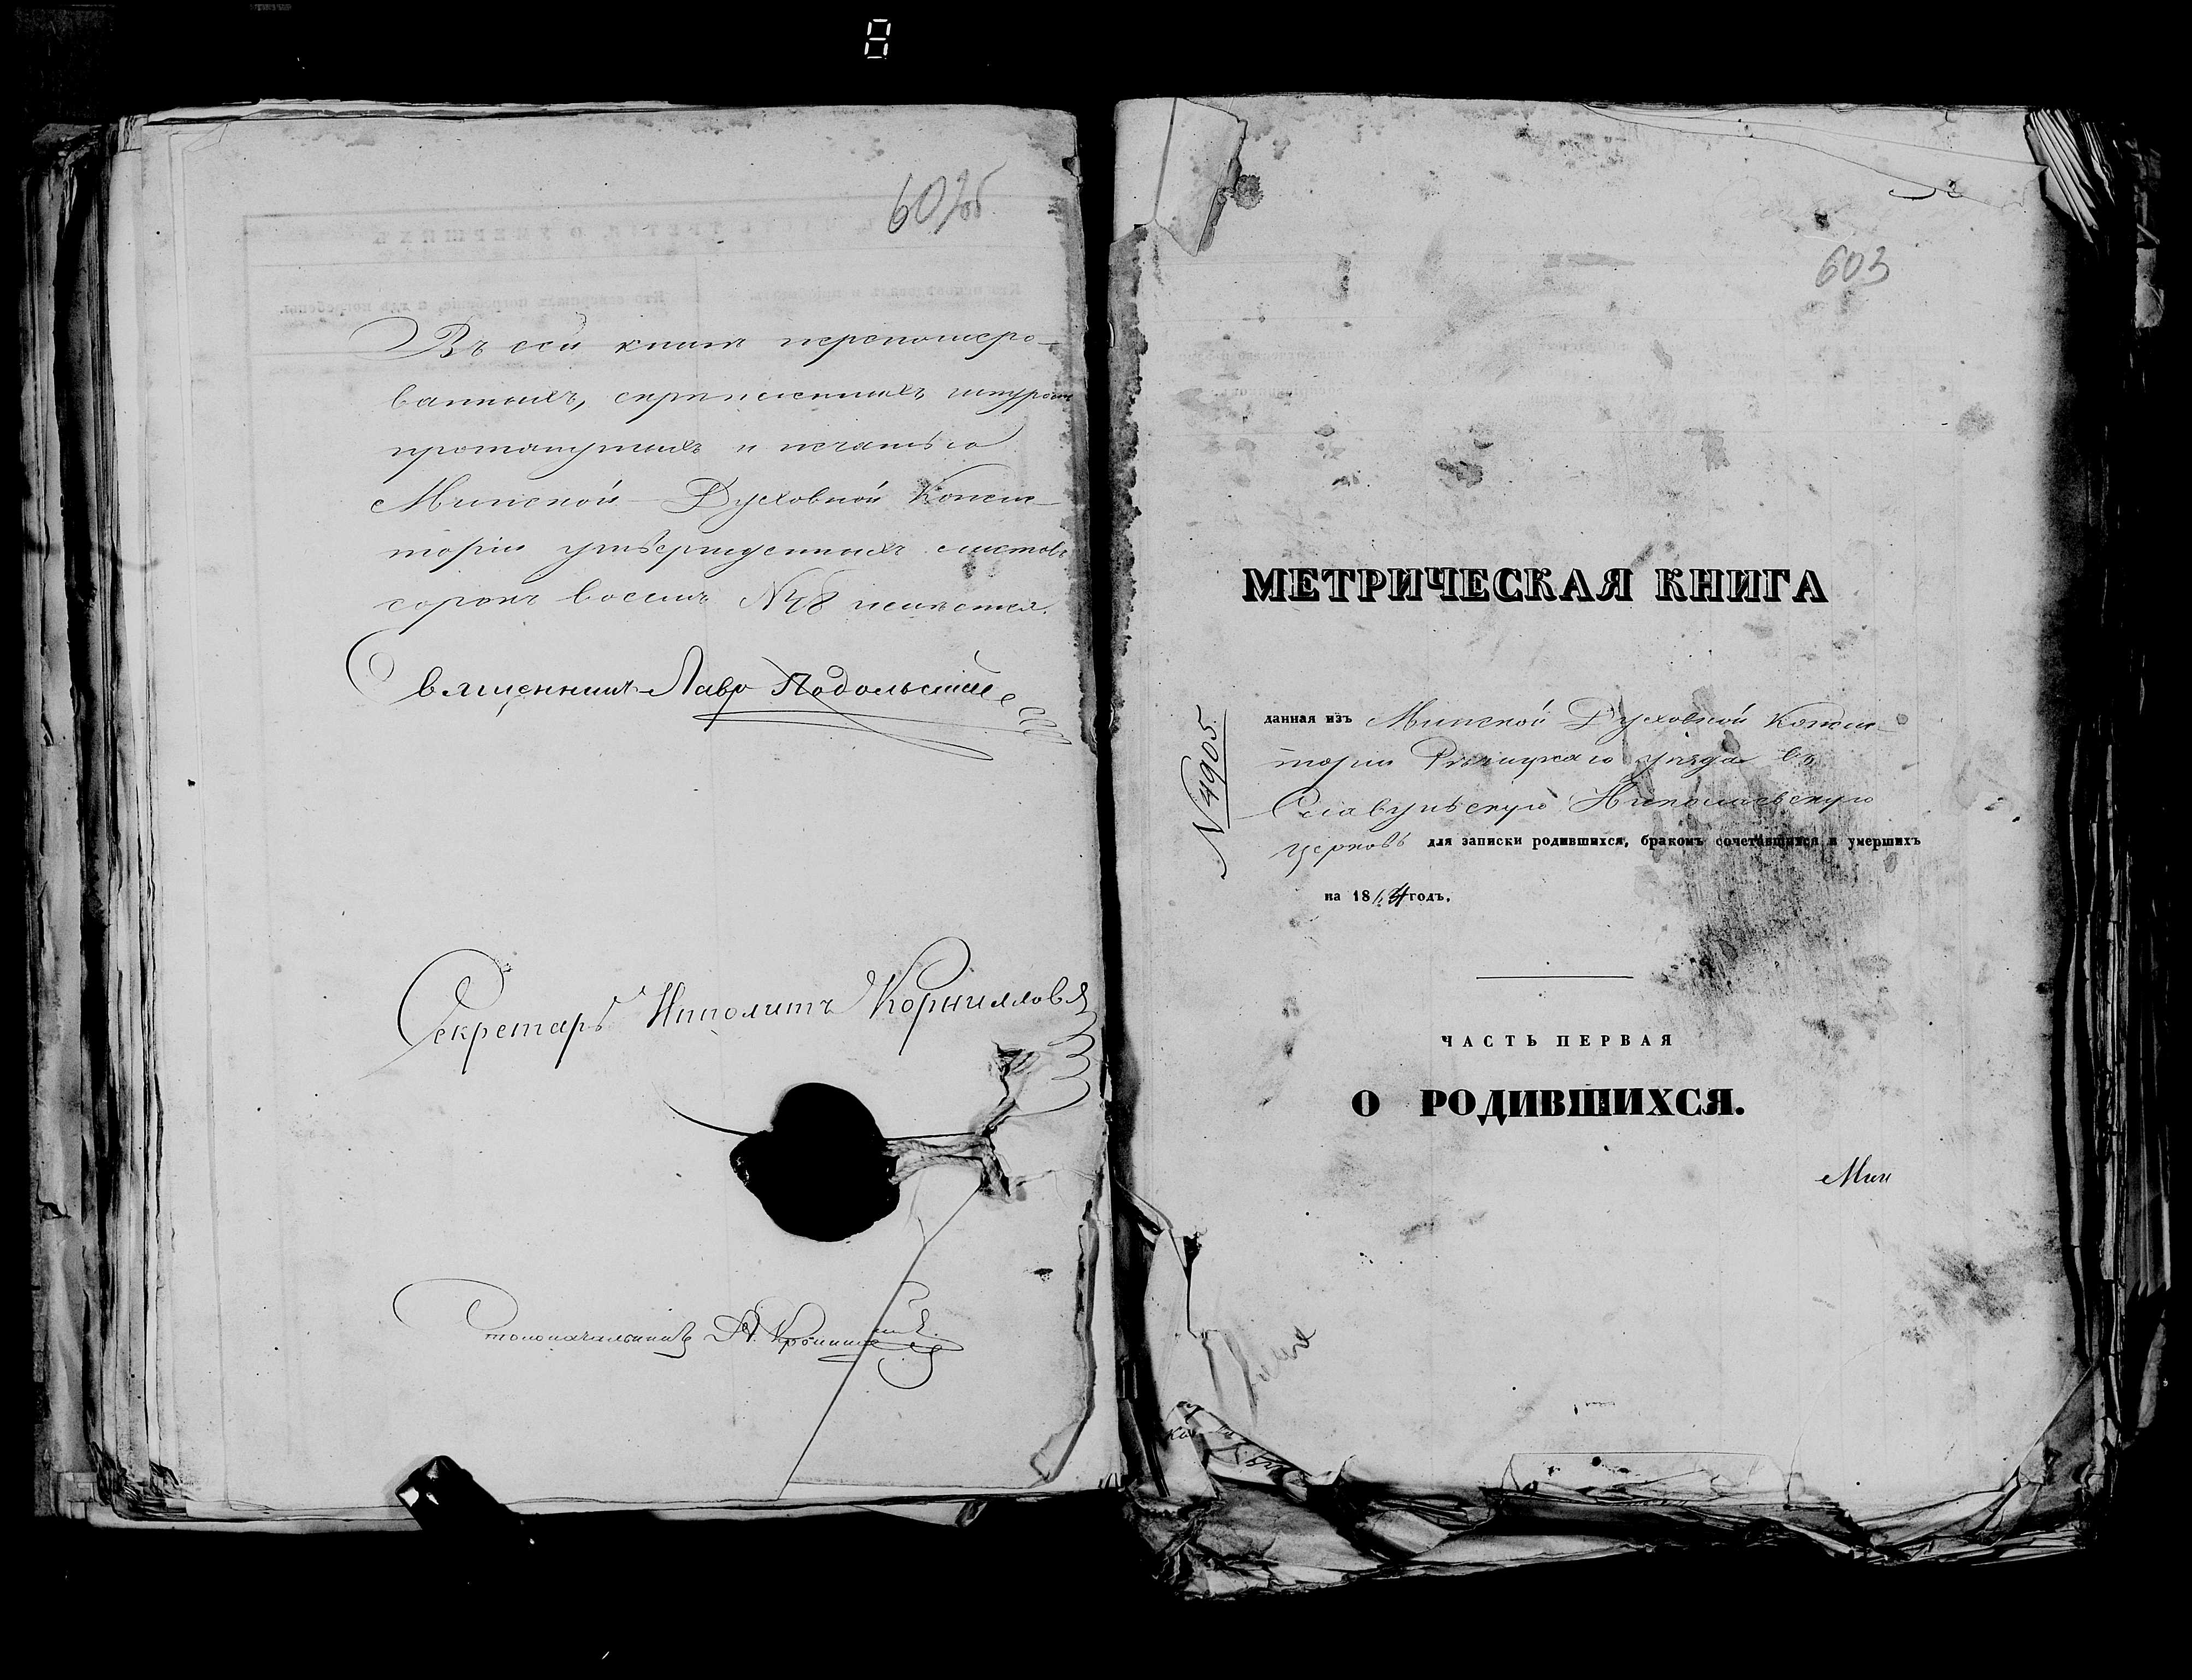 602об.
Въ сей книгѣ перенумеро-
ванныхъ, скрѣпленныхъ шнуромъ
протянутыхъ и печатью
Минской Духовной Конси-
торіи утвержденныхъ листовъ
сорокъ восемь №48 имѣется.
Священникъ Лавр Подольскій
Секретарь Ипполитъ Корниловъ
Столоначальникъ
603
МЕТРИЧЕСКАЯ КНИГА
№ 4905
данная изъ Минской Духовной Конси-
торіи Рѣчицкаго уѣзда въ
Николаевскую
церковь для записки родившихся, бракомъ сочетавшихся и умершихъ
на 18 годъ.
ЧАСТЬ ПЕРВАЯ
О РОДИВШИХСЯ.
Мин